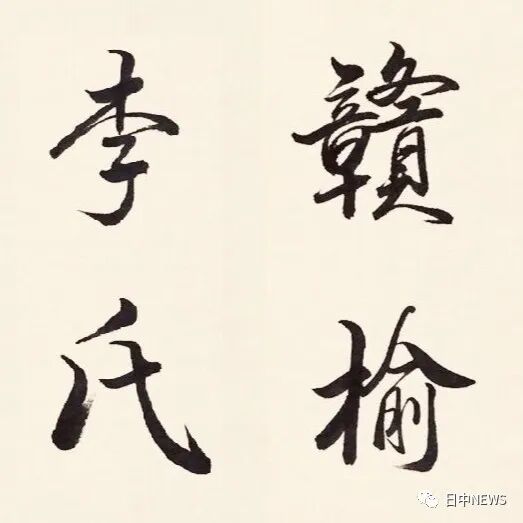 贛榆
李氏
日中NEWS